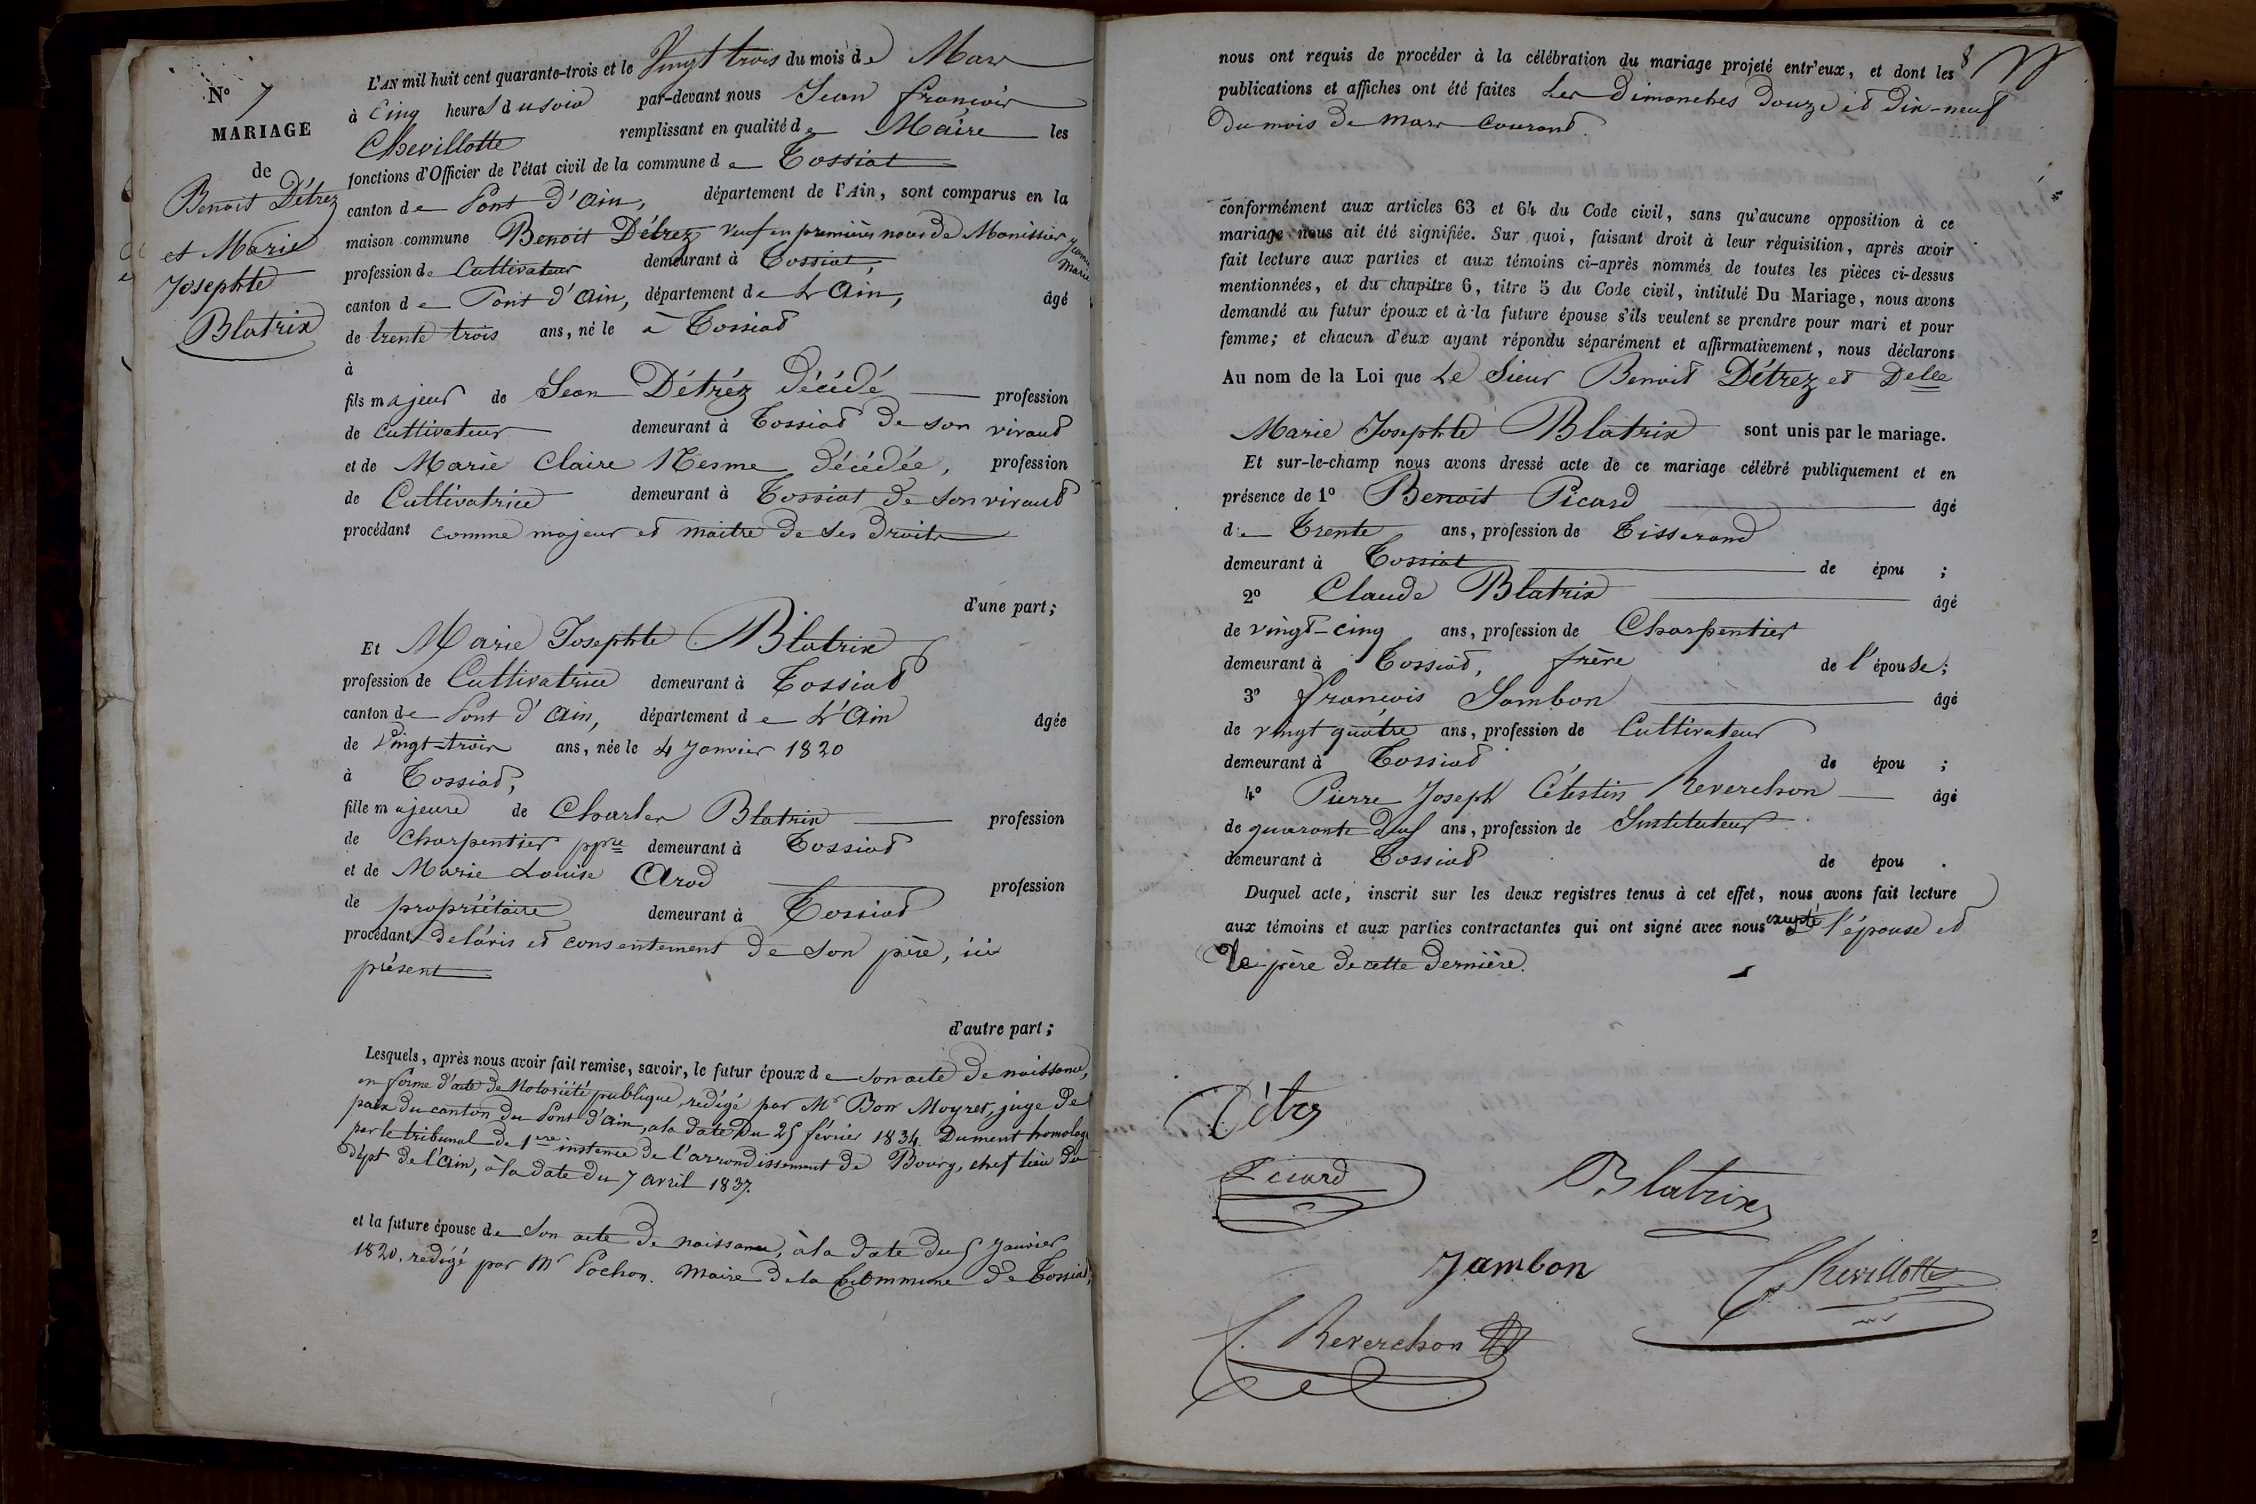 N° 7
MARIAGE
de
Benoit Détrez
et Marie
Josephte
Blatrix
L'AN mil huit cent quarante-trois et le Vingt trois du mois de Mars
à Cinq heures du soir par-devant nous Jean françois
Chevillotte remplissant en qualité de Maire les
fonctions d'Officier de l'état civil de la commune de Tossiat
canton de Pont d'Ain, département de l'Ain, sont comparus en la
maison commune Benoit Détrez veuf en premières noces de Monissier Jeanne Marie
profession de Cultivateur demeurant à Tossiat,
canton de Pont d'Ain, département de L'Ain, âgé
de trente trois ans, né le à Tossiat
à
fils majeur de Jean Détréz décédé profession
de cultivateur demeurant à Tossiat de son vivant
et de Marie Claire Nesme décédée, profession
de Cultivatrice demeurant à Tossiat de son vivant
procédant comme majeur et maitre de ses droits
d'une part;
Et Marie Josephte Blatrix
profession de Cultivatrice demeurant à Tossiat
canton de Pont d'Ain, département de L'Ain âgée
de Vingt-trois ans, née le 4 Janvier 1820
à Tossiat,
fille majeure de Charles Blatrix profession
de Charpentier ppre demeurant à Tossiat
et de Marie Louise Arod profession
de propriétaire demeurant à Tossiat
procédant de l'avis et consentement de son père, ici
présent
d'autre part;
Lesquels, après nous avoir fait remise, savoir, le futur époux de son acte de naissance,
en forme d'acte de Notoriété publique rédigé par Mr Bon Moyret, juge de
paix du canton du Pont d'Ain, a la date du 25 février 1834. Dument homologué
par le tribunal de 1ere instance de l'arrondissement de Bourg, chef lieu du
Dépt de l'Ain, à la date du 7 avril 1837.
et la future épouse de Son acte de naissance, à la date du 5 Janvier
1820. redigé par Mr Pochon. Maire de la Commune de Tossiat,
8
nous ont requis de procéder à la célébration du mariage projeté entr'eux, et dont les
publications et affiches ont été faites Les Dimanches Douze et Dix-neuf
Du mois de Mars Courant.
conformément aux articles 63 et 64 du Code civil, sans qu'aucune opposition à ce
mariage nous ait été signifiée. Sur quoi, faisant droit à leur réquisition, après avoir
fait lecture aux parties et aux témoins ci-après nommés de toutes les pièces ci-dessus
mentionnées, et du chapitre 6, titre 5 du Code civil, intitulé Du Mariage, nous avons
demandé au futur époux et à la future épouse s'ils veulent se prendre pour mari et pour
femme; et chacun d'eux ayant répondu séparément et affirmativement, nous déclarons
Au nom de la Loi que Le Sieur Benoit Détrez et Delle
Marie Josephte Blatrix sont unis par le mariage.
Et sur-le-champ nous avons dressé acte de ce mariage célébré publiquement et en
présence de 1° Benoit Picard âgé
de Trente ans, profession de Tisserand
demeurant à Tossiat de épou ;
2° Claude Blatrix âgé
de vingt-cinq ans, profession de Charpentier
demeurant à Tossiat, frère de l'épouse;
3° françois Jambon âgé
de vingt quatre ans, profession de Cultivateur
demeurant à Tossiat de épou ;
4° Pierre Joseph Célestin Reverchon âgé
de quarante deux ans, profession de Instituteur
demeurant à Tossiat de épou .
Duquel acte, inscrit sur les deux registres tenus à cet effet, nous avons fait lecture
aux témoins et aux parties contractantes qui ont signé avec nous excepté l'épouse et
Le père de cette dernière.
Détrez
Picard
Blatrix
Jambon
Chevillotte
C. Reverchon